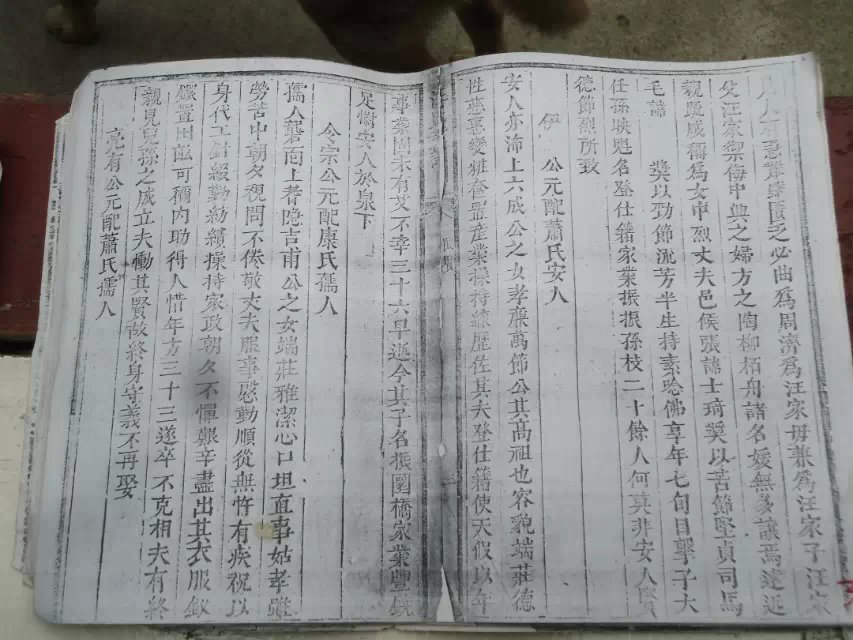 人有悉難歸匱乏必曲爲周濟爲汪家毋兼爲汪家子汪家
父汪家禦侮中興之婦方之陶柳栢舟諸名媛無多讓焉遠近
親踈咸稱爲女中烈丈夫邑侯張諱士琦奬以苦節堅貞司馬
毛諱 奬以劲節流芳半生持素唸佛享年七旬目擊子大
任孫映魁名登仕籍家業振振孫枝二十餘人何莫非安人賢
德節烈所致
伊 公元配蕭氏安人
安人亦沛上六成公之女孝廉萬節公其高祖也容貌端莊德
性慈惠變粧奩置產業操持練歷佐其夫登仕籍使天假以年
事業固未有艾不幸三十六早逝今其子名振國橋家業豐
足慰安人於泉下
令宗公元配康氏孺人
孺人磐面上耆隐吉甫公之女端莊雅潔心口坦直事姑孝雖
勞苦中朝夕視問不倦敬丈夫凞事慇勤順從無忤有疾祝以
身代工針綴勤紡績操持家政朝夕不懼艱辛盡出其衣服釵
鐶置田畝可稱內助得人惜年方三十三遂卒不克相夫有終
親見兒孫之成立夫慟其賢故終身守義不再娶
亮有公元配蕭氏孺人